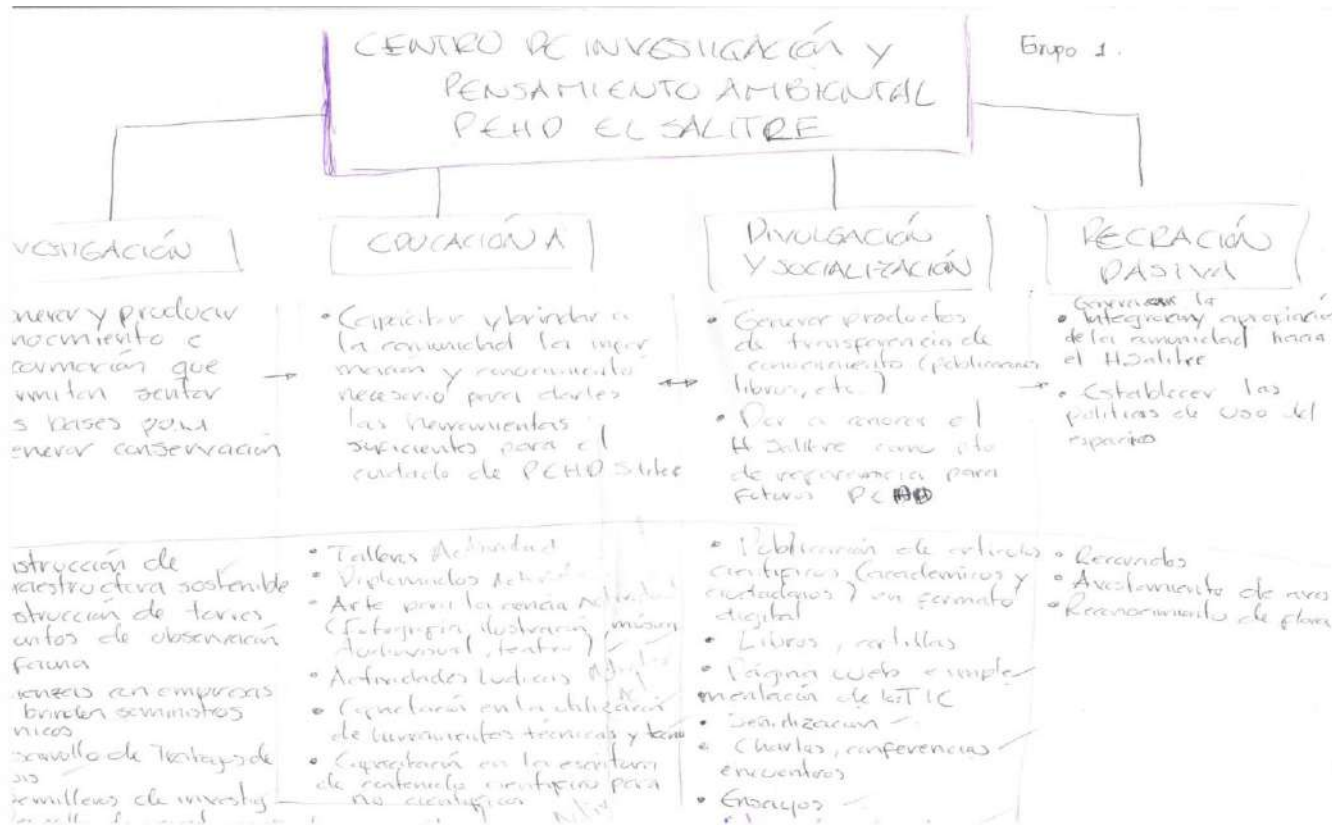 CENTRO DE INVESTIGACIÓN Y
PENSAMIENTO AMBIENTAL
PEHD EL SALITRE
Grupo 1.
VESTIGACIÓN
nerar y producir
nocimiento e
formación que
rmitan sentar
s bases para
enerar conservación
strucción de
raestructura sostenible
strucción de torres
untos de observación
fauna
ianzas con empresas
brinden suministros
nicos
sarrollo de Trabajos de
sis
emilleros de investig
EDUCACIÓN A
• Capacitar y brindar a
la comunidad la infor
mación y conocimiento
necesario para darles
las herramientas
suficientes para el
cuidado de PEHD Salitre
• Talleres Actividad
• Diplomados
• Arte para la ciencia
(Fotografía, ilustración, música
Audiovisual, teatro)
• Actividades Ludicas
• Capacitación en la utilización
de herramientas técnicas y
• Capacitación en la escritura
de contenido científico para
no científicos
DIVULGACIÓN
Y SOCIALIZACIÓN
• Generar productos
de transferencia de
conocimiento (publicaciones
libros, etc.)
• Dar a conocer el
H Salitre como pto
de referencia para
futuros PE
• Publicación de articulos
científicos (academicos y
ciudadanos) en formato
digital
• Libros, cartillas
• Página web e imple
mentación de las TIC
• Señalización
• Charlas, conferencias
encuentros
• Ensayos
RECRACIÓN
PASIVA
Generar la
• Integración y apropiación
de la comunidad hacia
el H Salitre
• Establecer las
politicas de uso del
espacio
• Recorridos
• Avistamiento de aves
• Reconocimiento de flora